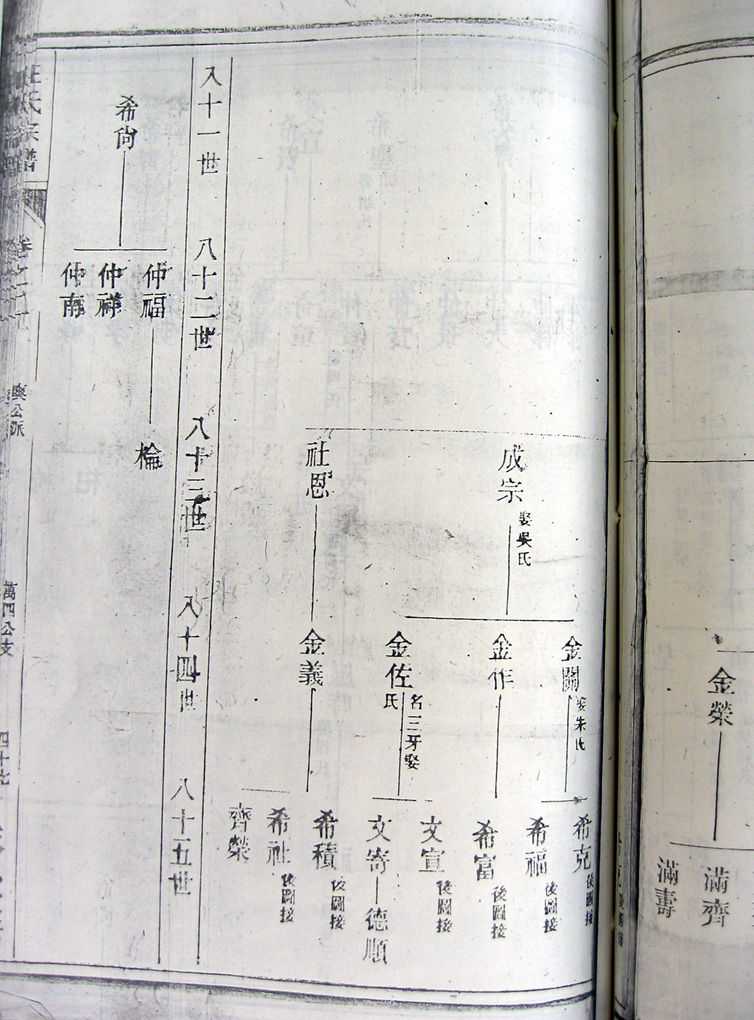 金榮
滿齊
滿壽
成宗
娶吳氏
社恩
金關
娶朱氏
金作
金佐
名三牙娶
氏
金義
希克
後圖接
希福
後圖接
希富
後圖接
文宣
後圖接
文寄
德順
希積
後圖接
希社
後圖接
齊榮
八十一世
八十二世
八十三世
八十四世
八十五世
希尚
仲福
仲祥
仲南
棆
氏宗譜
公派
萬四公支
四十七